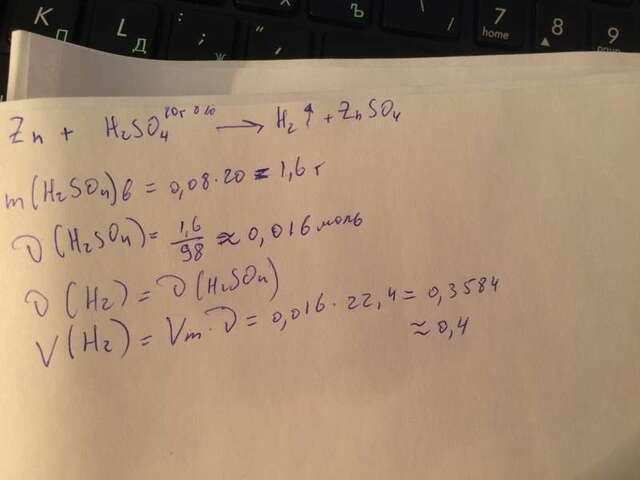 K Л
L Д
; Ж
Ъ
\ /
7 home
8
9
Zn + H₂SO₄ → H₂↑ + ZnSO₄
m(H₂SO₄)в = 0,08·20 = 1,6 г
ν(H₂SO₄) = 1,6/98 ≈ 0,016 моль
ν(H₂) = ν(H₂SO₄)
V(H₂) = Vm·ν = 0,016·22,4 = 0,3584
≈ 0,4